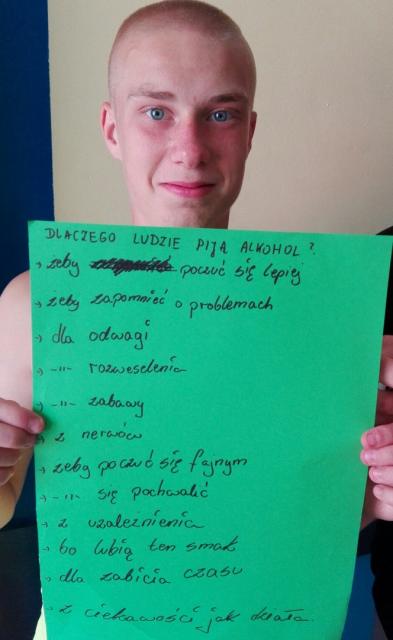 DLACZEGO LUDZIE PIJĄ ALKOHOL?
→ żeby poczuć się lepiej
→ żeby zapomnieć o problemach
→ dla odwagi
→ -"- rozweselenia
→ -"- zabawy
→ z nerwów
→ żeby poczuć się fajnym
→ -"- się pochwalić
→ z uzależnienia
→ bo lubią ten smak
→ dla zabicia czasu
→ z ciekawości jak działa.